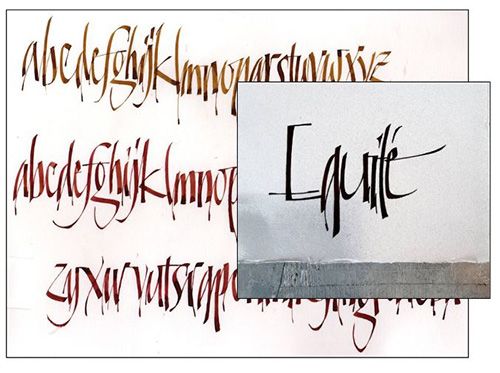 abcdefghijklmnopqrstuvwxyz
Equité
abcdefghijklmnop
zyxwvutsrqpo